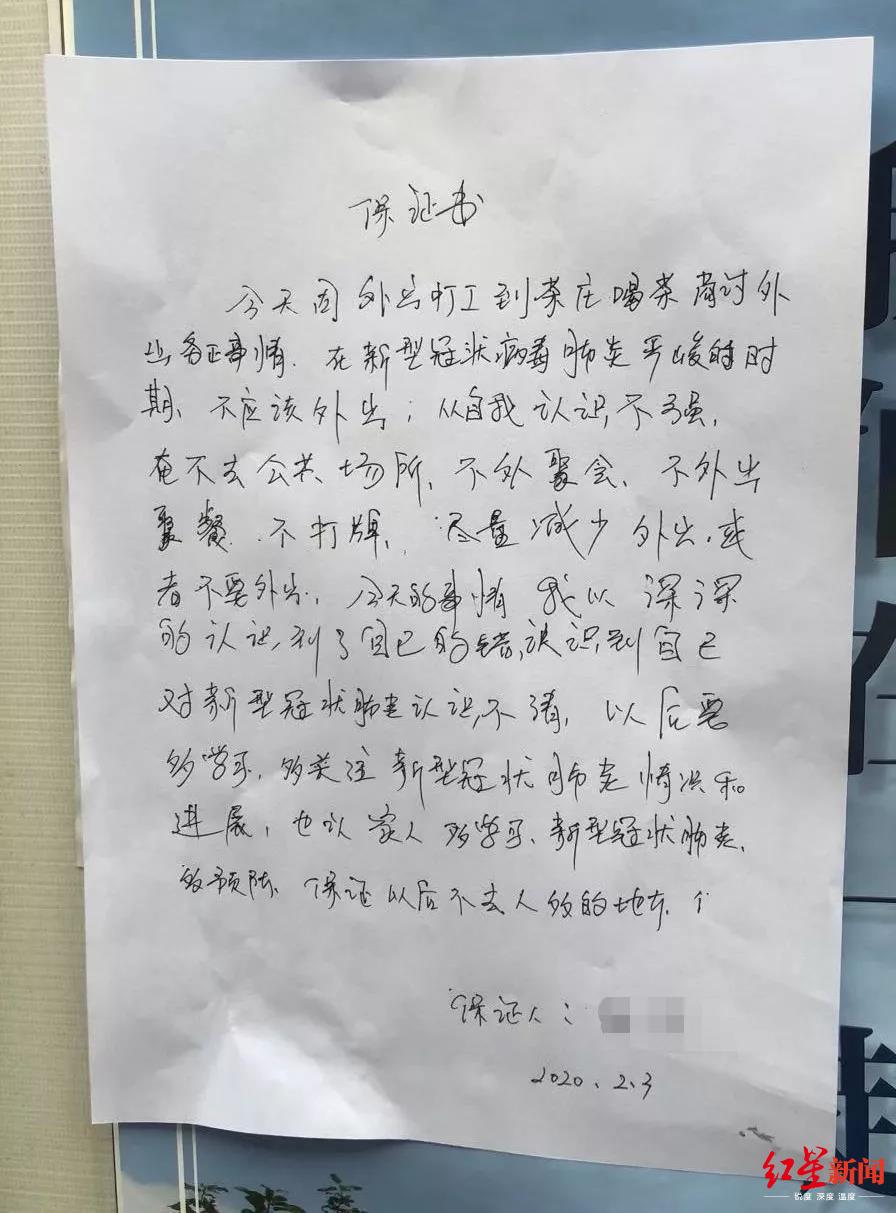 保证书
今天因外出打工到茶庄喝茶商讨外
出务工事情. 在新型冠状病毒肺炎严峻的时
期、不应该外出；从自我认识不强，
不去公共场所、不外聚会、不外出
聚餐、不打牌、尽量减少外出，或
者不要外出、今天的事情我以深深
的认识到了自己的错误识到自己
对新型冠状肺炎认识不清，以后要
多学习，多关注新型冠状肺炎情况和
进展，也认家人多学习、新型冠状肺炎、
的预防、保证以后不去人多的地方、
保证人：
2020.2.3
红星新闻
锐度 深度 温度